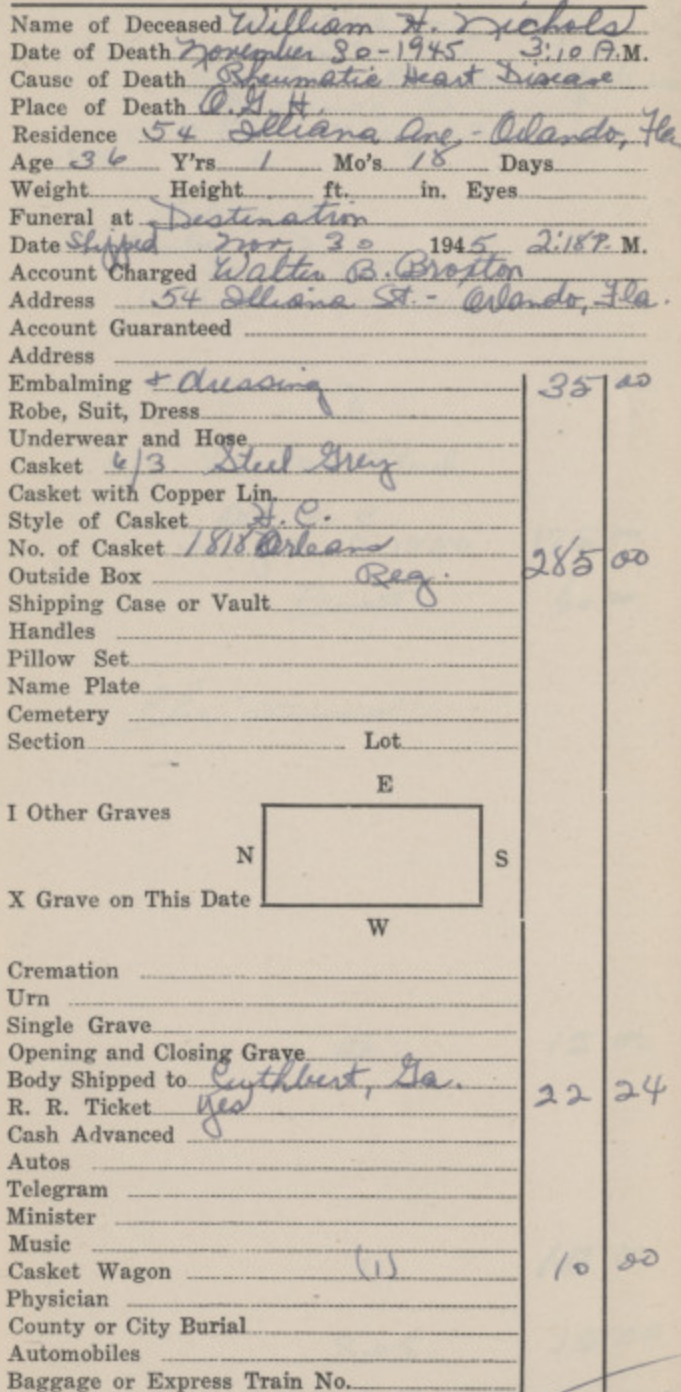 Name of Deceased William H. Nichols
Date of Death November 30-1945 3:10 A.M.
Cause of Death Rheumatic Heart Disease
Place of Death O.G.H.
Residence 54 Illiana Ave,- Orlando, Fla
Age 36 Y'rs 1 Mo's 18 Days
Weight Height ft. in. Eyes
Funeral at Destination
Date Shipped Nov. 30 1945 2:18 P. M.
Account Charged Walter B. Broxton
Address 54 Illiana St. - Orlando, Fla.
Account Guaranteed
Address
Embalming + dressing 35 00
Robe, Suit, Dress
Underwear and Hose
Casket 6/3 Steel Grey
Casket with Copper Lin.
Style of Casket H.C.
No. of Casket 1818 Orleans 285 00
Outside Box Reg.
Shipping Case or Vault
Handles
Pillow Set
Name Plate
Cemetery
Section Lot
E
I Other Graves
N S
X Grave on This Date
W
Cremation
Urn
Single Grave
Opening and Closing Grave
Body Shipped to Cuthbert, Ga. 22 24
R. R. Ticket Yes
Cash Advanced
Autos
Telegram
Minister
Music
Casket Wagon (1) 10 00
Physician
County or City Burial
Automobiles
Baggage or Express Train No.